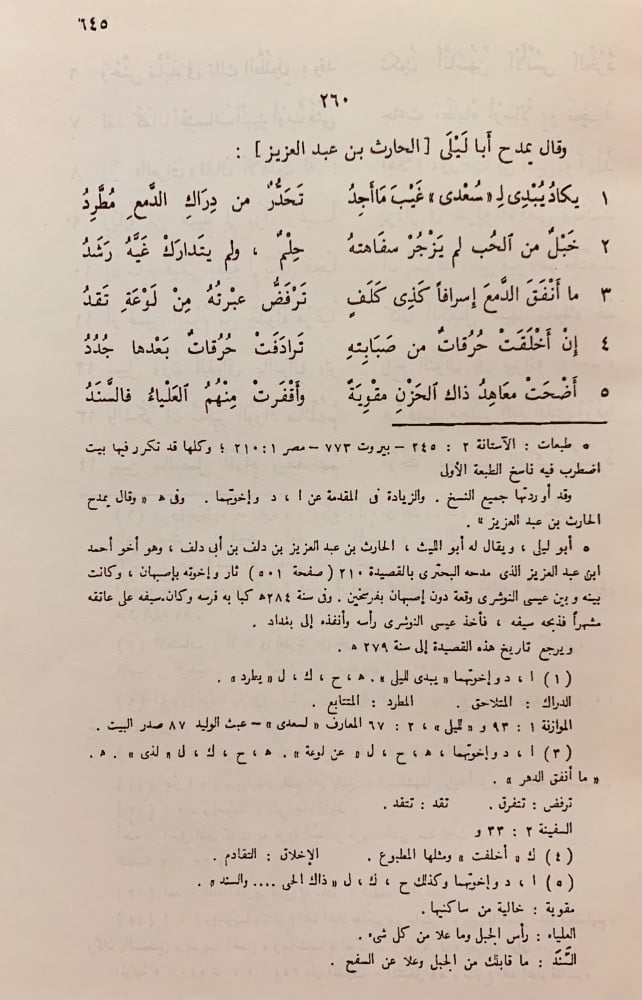 ٦٤٥
٢٦٠
وقال يمدح أبا لَيْلَى [الحارث بن عبد العزيز] :
١ يكادُ يُبْدِى لِـ «سُعْدى» غَيْبَ مَا أَجِدُ تَحَدُّرٌ من دِرَاكِ الدَّمعِ مُطَّرِدُ
٢ خَبْلٌ من الحُب لم يَزْجُرْ سفَاهتهُ حِلْمٌ ، ولم يتدارَكْ غَيَّهُ رَشَدُ
٣ ما أَنْفَقَ الدَّمعَ إِسرافاً كَذِى كَلَفٍ تَرْفَضُّ عبْرتُهُ مِنْ لَوْعَةِ تَقدُ
٤ إِنْ أَخْلَقَتْ حُرُقاتٌ من صَبَابتِهِ تَرادَفَتْ حُرُقاتٌ بَعْدها جُدُدُ
٥ أَضْحَتْ معَاهِدُ ذاك الحَزْنِ مقْوِيَةً وأَقْفَرتْ مِنْهُمُ العَلْياءُ فالسَّنَدُ
* طبعات : الآستانة ٢ : ٢٤٥ – بيروت ٧٧٣ – مصر ١ : ٢١٠ ؛ وكلها قد تكرر فيها بيت
اضطرب فيه ناسخ الطبعة الأولى
وقد أوردتها جميع النسخ . والزيادة فى المقدمة عن ا ، د وإخوتهما . وفى ه « وقال يمدح
الحارث بن عبد العزيز » .
* أبو ليلى ، ويقال له أبو الليث ، الحارث بن عبد العزيز بن دلف بن أبى دلف ، وهو أخو أحمد
ابن عبد العزيز الذى مدحه البحترى بالقصيدة ٢١٠ ( صفحة ٥٠١ ) ثار وإخوته بإصبهان ، وكانت
بينه وبين عيسى النوشرى وقعة دون إصبهان بفرسخين . وفى سنة ٢٨٤ه كبا به فرسه وكان سيفه على عاتقه
مشهراً فذبحه سيفه ، فأخذ عيسى النوشرى رأسه وأنفذه إلى بغداد .
ويرجع تاريخ هذه القصيدة إلى سنة ٢٧٩ ه .
(١) ا ، د وإخوتهما « يبدى لليلى » . ه ، ح ، ك ، ل « يطرد » .
الدراك : المتلاحق . المطرد : المتتابع .
الموازنة ١ : ٩٣ و « لليلى » ، ٢ : ٦٧ المعارف « لسعدى » – عبث الوليد ٨٧ صدر البيت .
(٣) ا ، د وإخوتهما ، ه ، ح ، ل « عن لوعة » . ه ، ح ، ك ، ل « لذى » . ه .
« ما أنفق الدهر » .
ترفض : تتفرق . تقد : تتقد .
السفينة ٢ : ٣٣ و
(٤) ك « أخلفت » ومثلها المطبوع . الإخلاق : التقادم .
(٥) ا ، د وإخوتهما وكذلك ح ، ك ، ل « ذاك الحى .... والسند » .
مقوية : خالية من ساكنيها .
العلياء : رأس الجبل وما علا من كل شىء .
السَّنَدُ : ما قابلك من الجبل وعلا عن السفح .